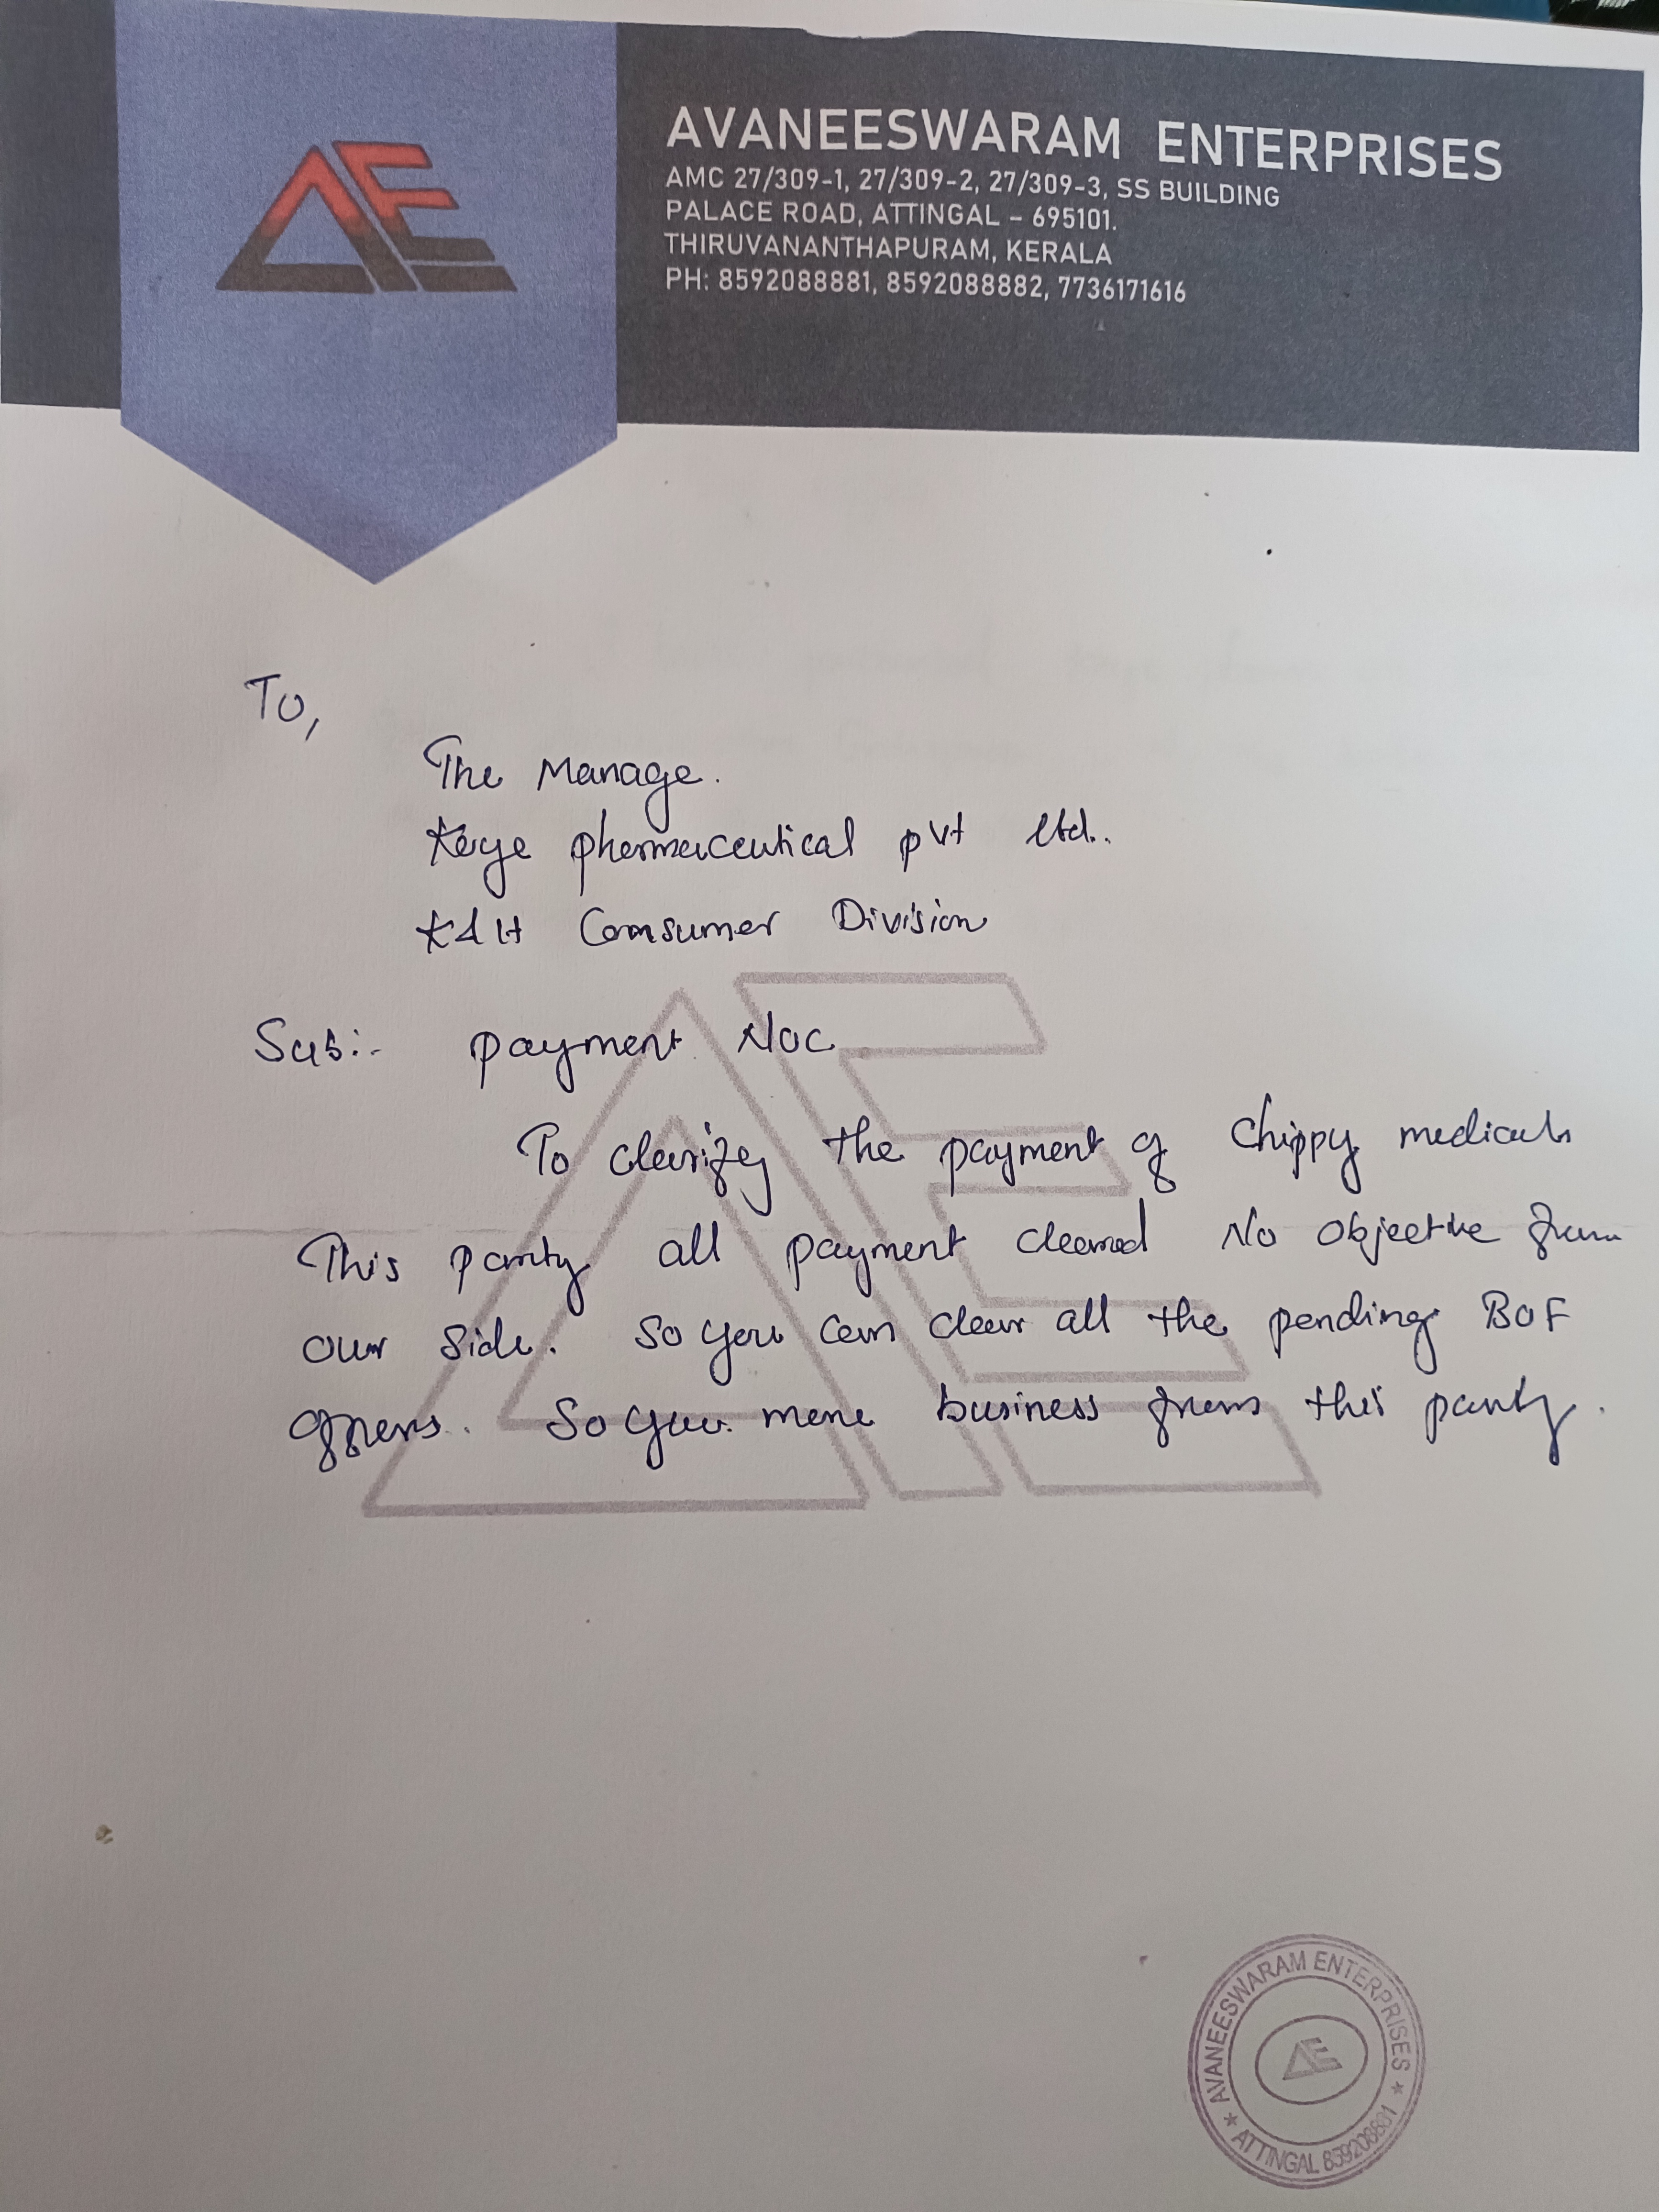 AE
AVANEESWARAM ENTERPRISES
AMC 27/309-1, 27/309-2, 27/309-3, SS BUILDING
PALACE ROAD, ATTINGAL – 695101.
THIRUVANANTHAPURAM, KERALA
PH: 8592088881, 8592088882, 7736171616
To,
The Manage.
Kaye pharmaceutical pvt ltd.
Consumer Division
Sub:- payment NOC
To clarify the payment of Chippy medicals
This party all payment cleared No objective from
our side. So you can clear all the pending BOF
offers. So you more business from this party.
AVANEESWARAM ENTERPRISES
AE
ATTINGAL